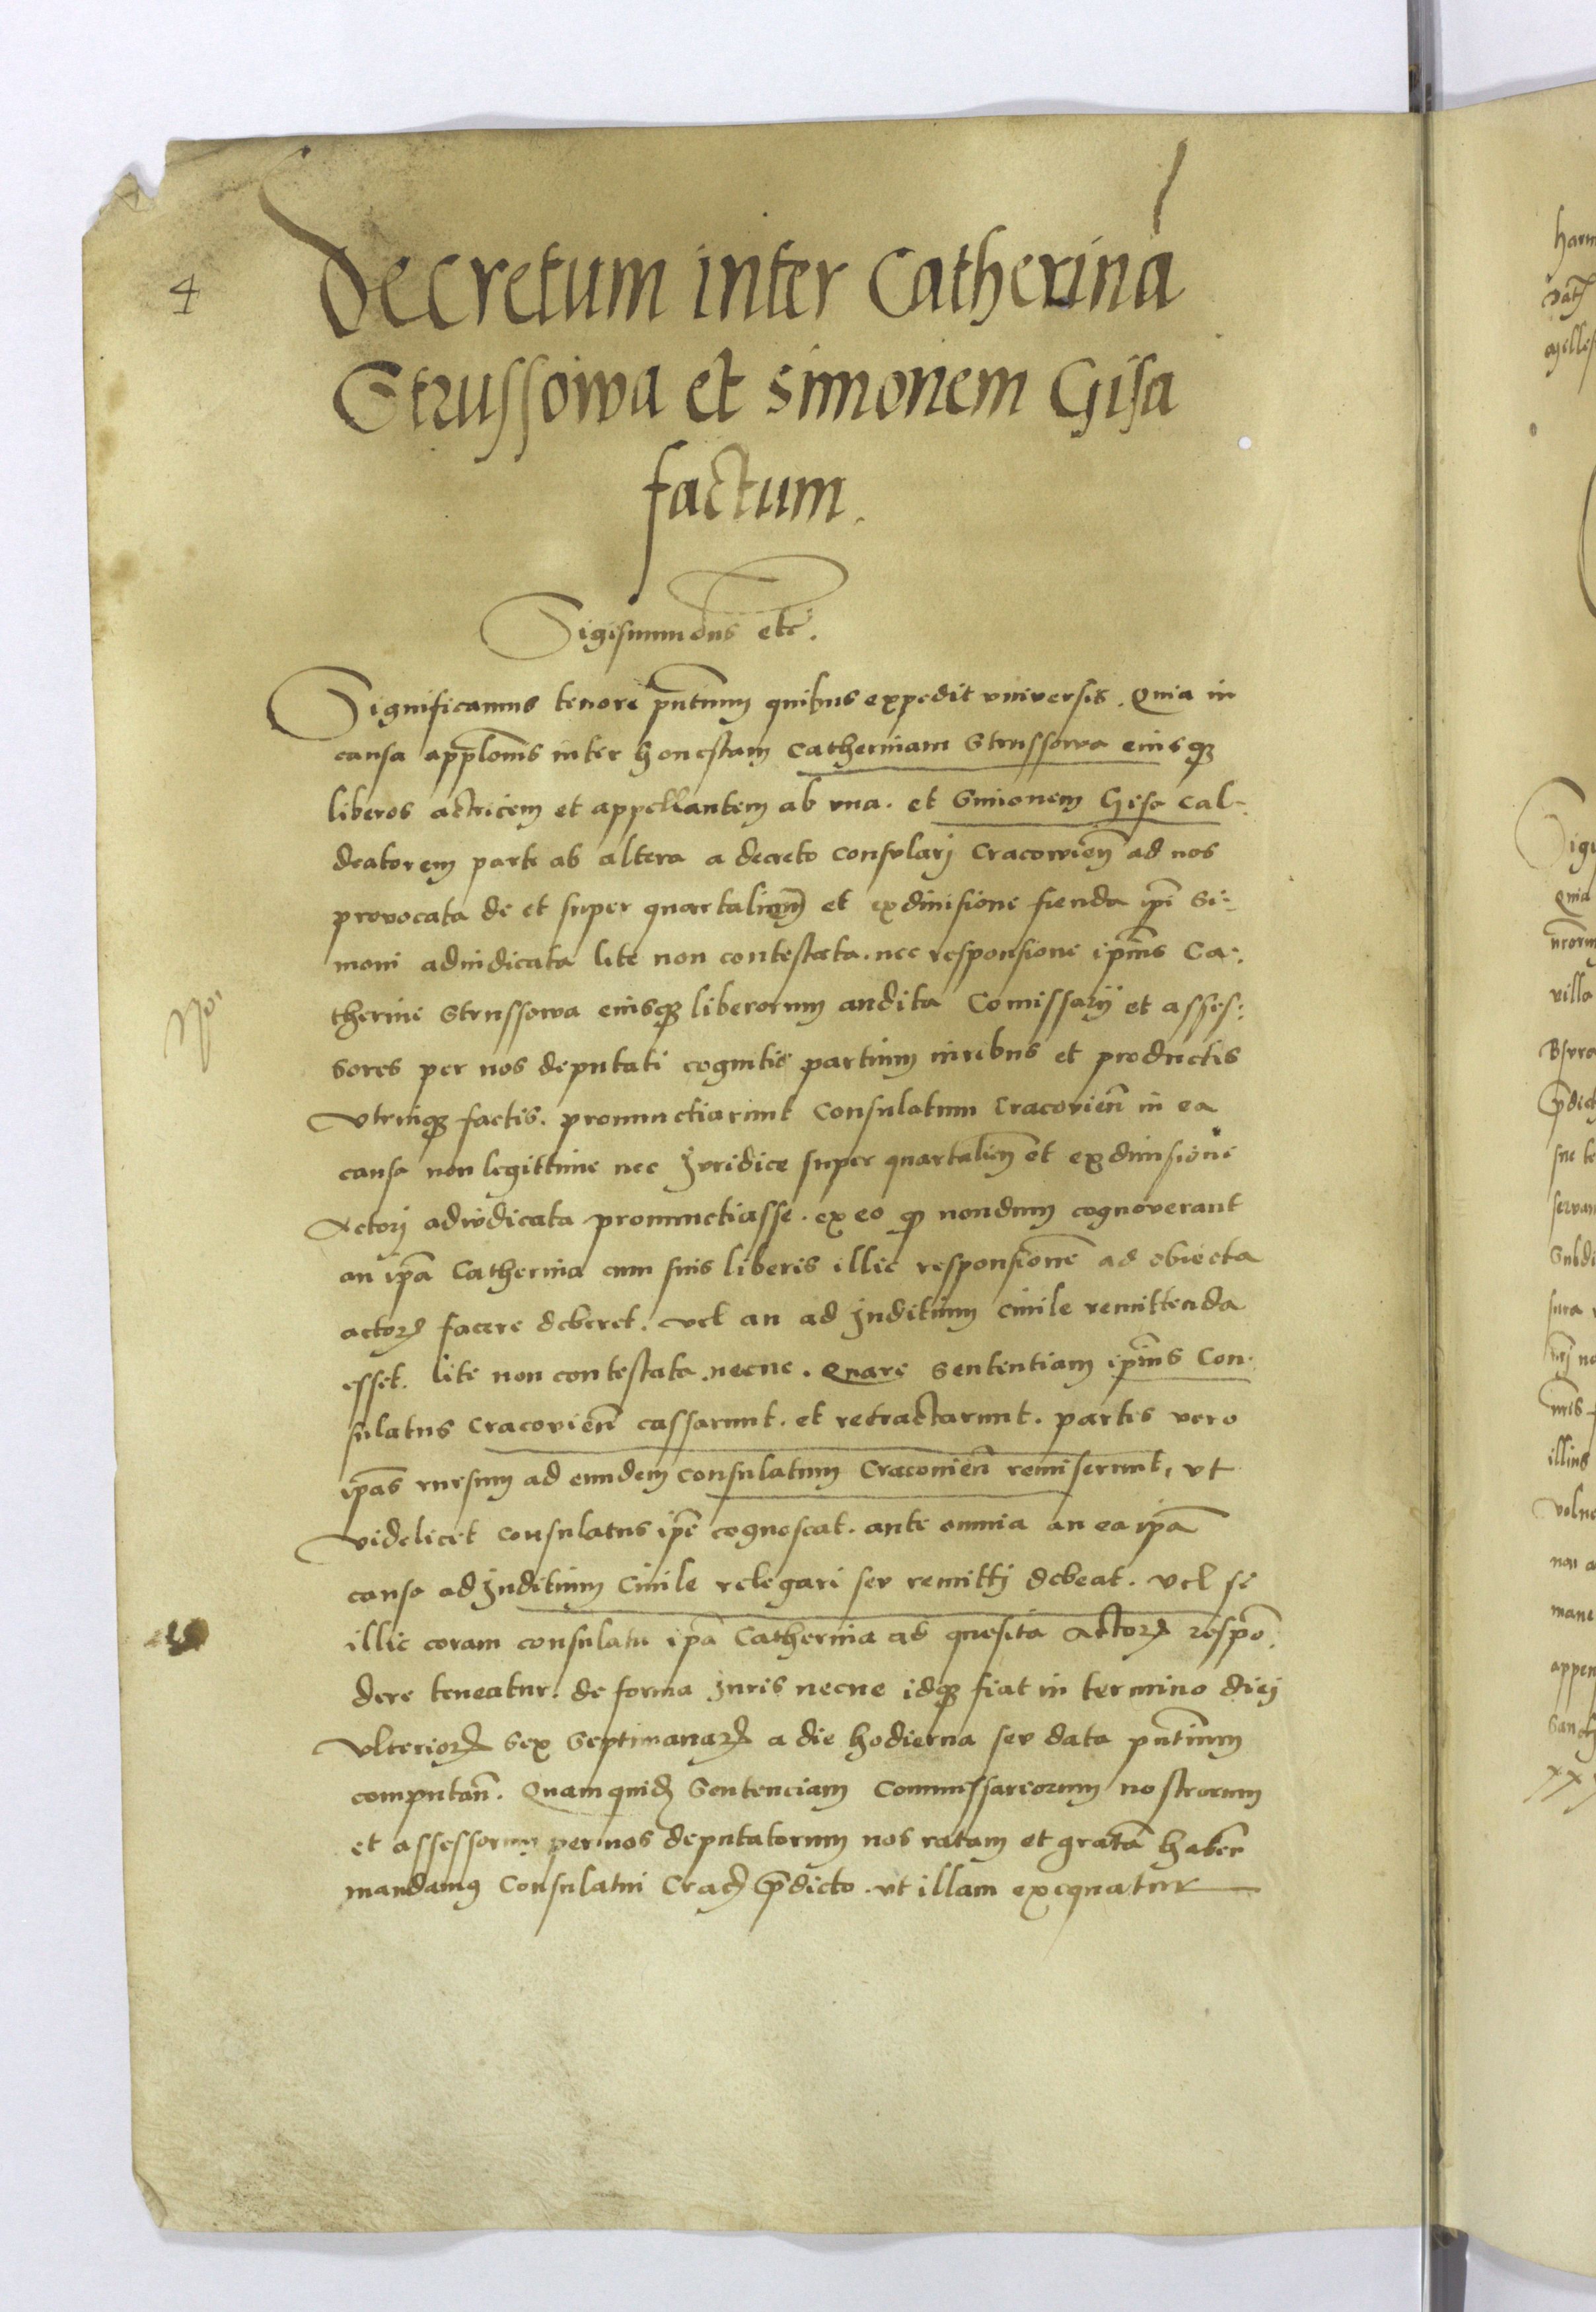 4
Decretum inter Catherinā
Strussowa et Simonem Gisa
factum.
Sigismundus etc̄.
Significamus tenore pn̄tium quibus expedit vniversis. Quia in
causa app̄lonis inter honestam Catherinam Strussowa eiusq₃
liberos actricem et appellantem ab vna. et Simonem Gisa Cal-
deatorem parte ab altera a decreto consularj Cracowien̄ ad nos
provocata de et super quartalium et exdiuisione fienda ip̄i Si-
moni adiudicata lite non contestata. nec responsione ip̄ius Ca-
therine Strussowa eiusq₃ liberorum audita Comissarij et asses-
sores per nos deputati cognitis partium iuribus et productis
vtrinq₃ factis. pronunctiarunt Consulatum Cracovien̄ in ea
causa non legittime nec Juridice super quartalien̄ et exdiuisione
Actorj adiudicata pronunctiasse. ex eo q₃ nondum cognoverant
an ip̄a Catherina cum suis liberis illic responsionē ad obiecta
actorꝭ facere deberet. vel an ad Juditium ciuile remittenda
esset. lite non contestata necne. Quare sententiam ip̄ius Con-
sulatus Cracovien̄ cassarunt. et retractarunt. partes vero
ip̄as rursum ad eundem consulatum Cracouien̄ remiserunt, vt
videlicet consulatus ip̄e cognoscat. ante omnia an ea ip̄a
causa ad Juditium Ciuile relegari seu remittj debeat. vel se
illic coram consulatu ip̄a Catherina ad quesita actorꝭ respō-
dere teneatur. de forma Juris necne idq₃ fiat in termino diej
vlteriorꝭ sex septimanarꝭ a die hodierna seu data pn̄tium
computan̄. Quamquidꝭ Sentenciam Commissariorum nostrorum
et assessorum per nos deputatorum nos ratam et gratā haben̄
mandamꝰ Consulatui Cracꝭ p̄dicto. vt illam exequatur